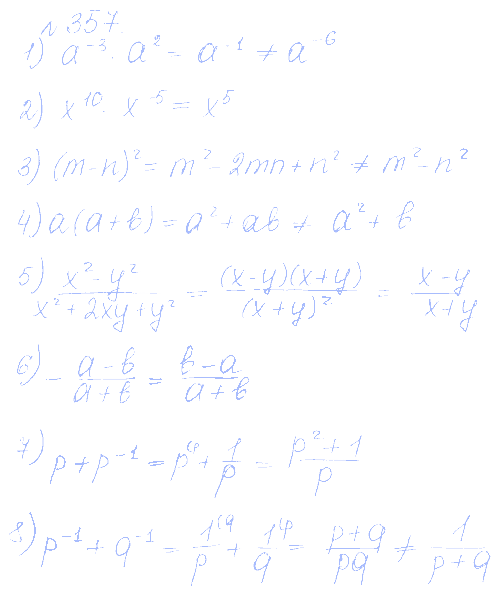 № 357.
1) a⁻³ · a² = a⁻¹ ≠ a⁻⁶
2) x¹⁰ · x⁻⁵ = x⁵
3) (m-n)² = m² - 2mn + n² ≠ m² - n²
4) a(a+b) = a² + ab ≠ a² + b
5) (x² - y²)/(x² + 2xy + y²) = ((x-y)(x+y))/((x+y)²) = (x-y)/(x+y)
6) - (a-b)/(a+b) = (b-a)/(a+b)
7) p + p⁻¹ = p⁽ᵖ + 1/p = (p² + 1)/p
8) p⁻¹ + q⁻¹ = 1⁽q/p + 1⁽p/q = (p+q)/(pq) ≠ 1/(p+q)